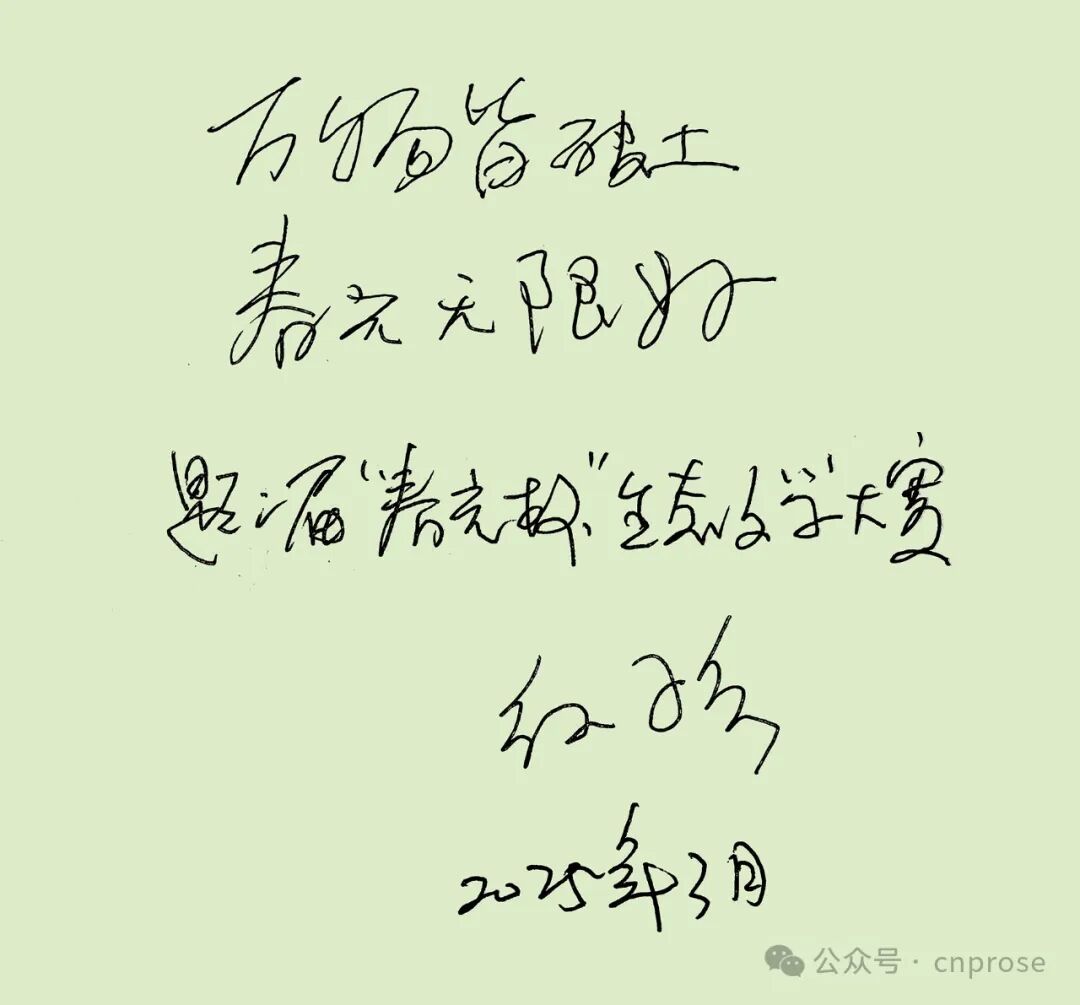 万物皆破土
春光无限好
题二届“春光杯”生态文学大赛
红孩
2025年3月
公众号·cnprose